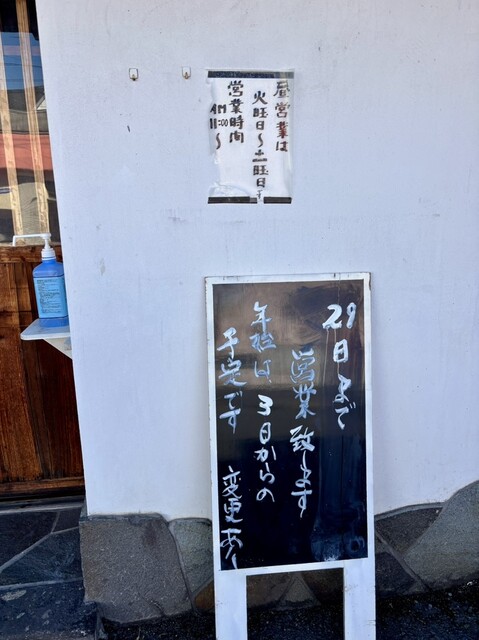 昼営業は
火曜日〜土曜日
営業時間
AM
11:00〜
29日まで
営業致します
年始は、3日からの
予定です 変更あり